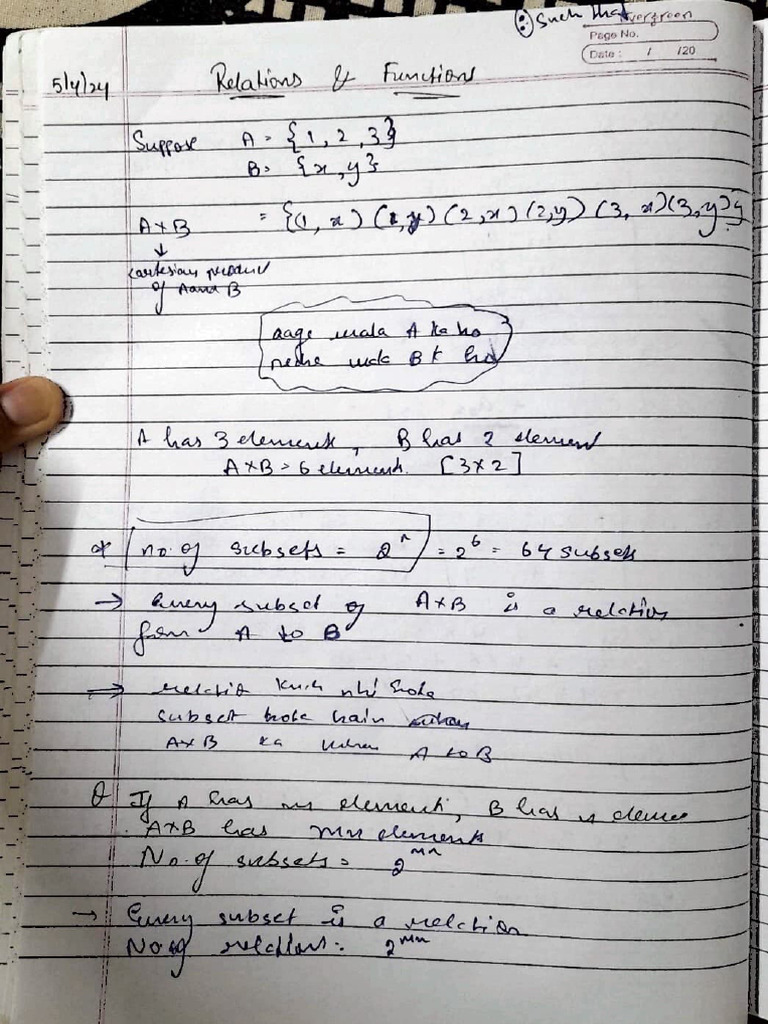 (:) Such that
Evergreen
Page No.
Date : / /20
5/4/24 Relations & Functions
Suppose A = {1, 2, 3}
B = {x, y}
A×B = {(1, x) (1, y) (2, x) (2, y) (3, x) (3, y)}
↓
cartesian product
of A and B
aage wala A ka ho
wala B k ho
A has 3 elements, B has 2 element
A×B = 6 element. [3×2]
* no. of subsets = 2ⁿ = 2⁶ = 64 subsets
→ Every subset of A×B is a relation
from A to B
⇒ relatio kuch nhi hota
subset hota hain
A×B ka A to B
Q If A has m element, B has n eleme
A×B has mn elements
No. of subsets = 2ᵐⁿ
→ Every subset is a relation
No of relations = 2ᵐⁿ